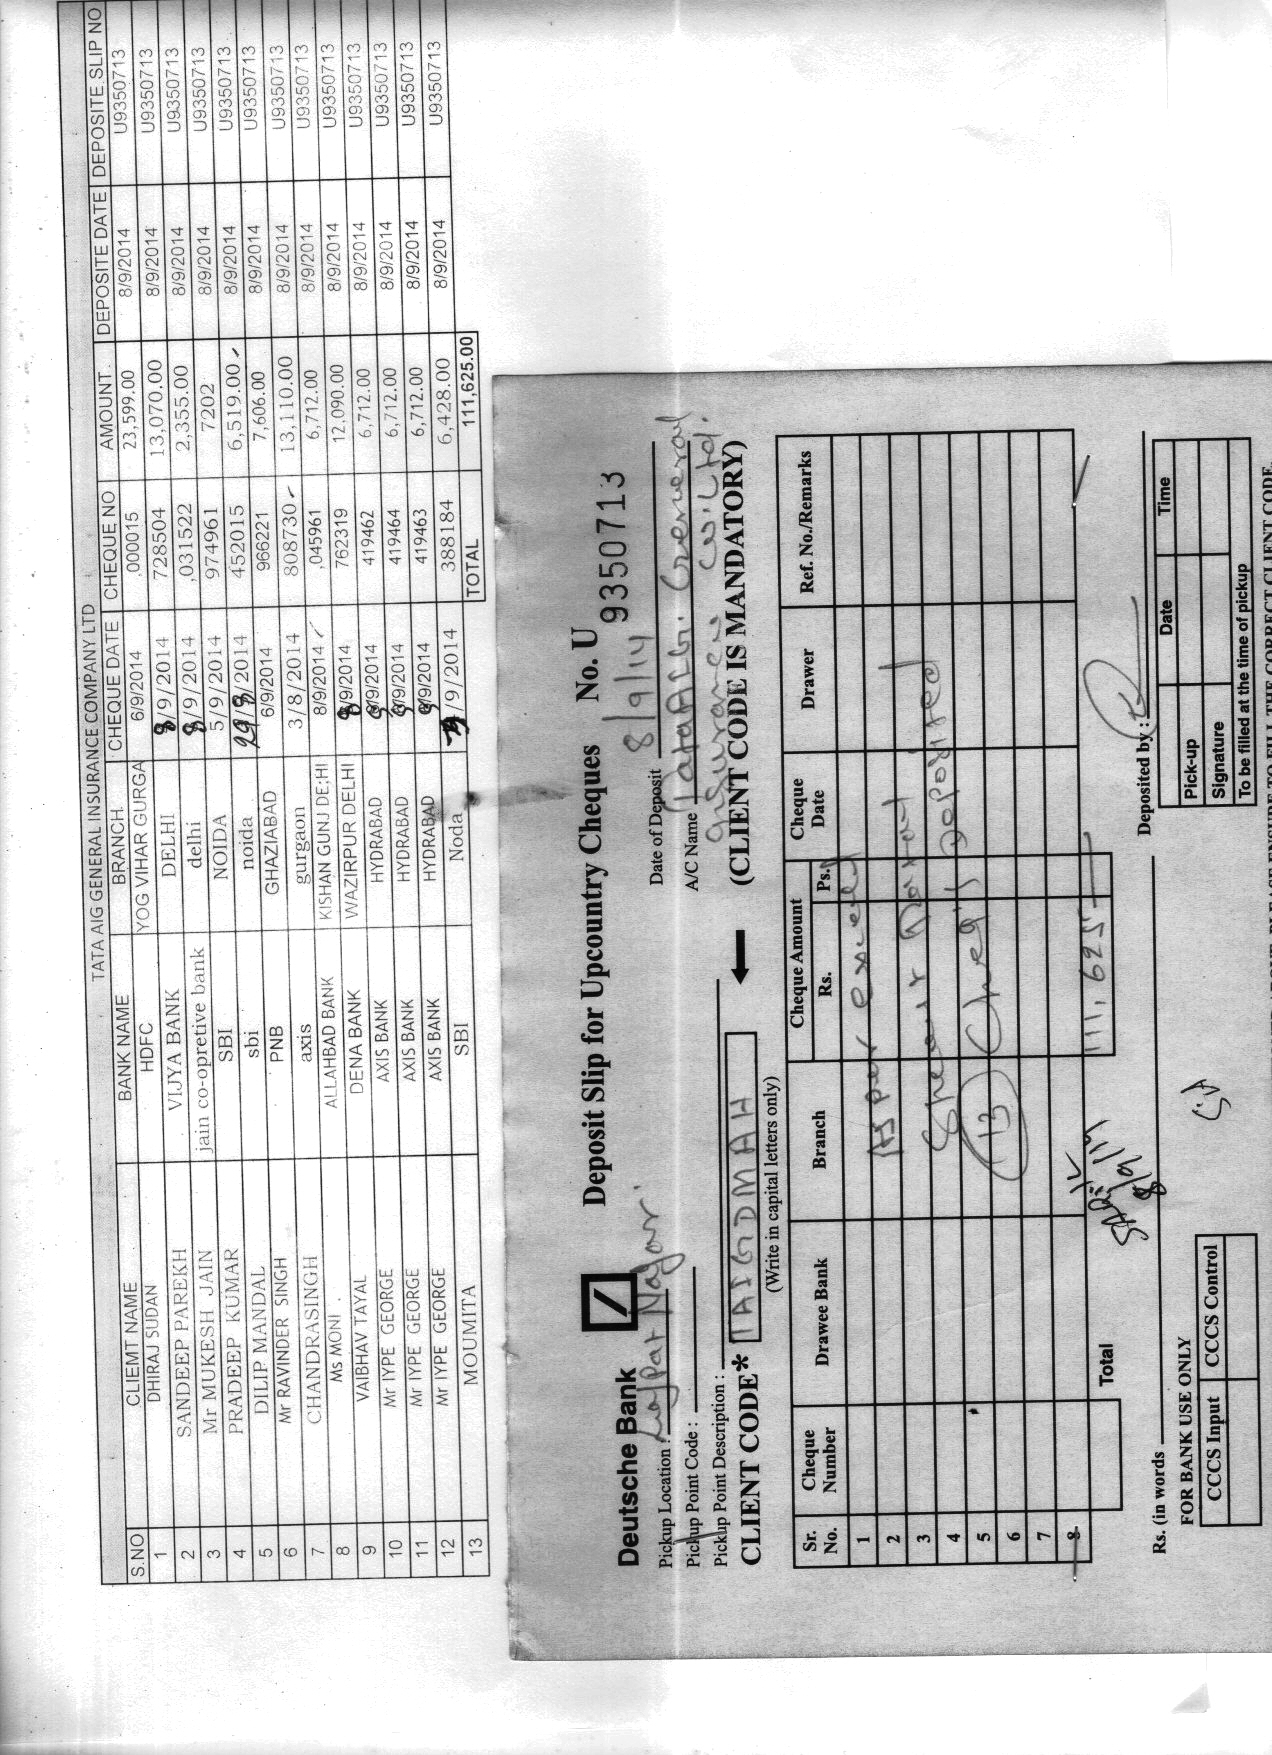 TATA AIG GENERAL INSURANCE COMPANY LTD
S.NO CLIEMT NAME BANK NAME BRANCH. CHEQUE DATE CHEQUE NO AMOUNT. DEPOSITE DATE DEPOSITE SLIP NO
1 DHIRAJ SUDAN HDFC YOG VIHAR GURGA 6/9/2014 ,000015 23,599.00 8/9/2014 U9350713
2 SANDEEP PAREKH VIJYA BANK DELHI 8/9/2014 728504 13,070.00 8/9/2014 U9350713
3 Mr MUKESH JAIN jain co-opretive bank delhi 8/9/2014 ,031522 2,355.00 8/9/2014 U9350713
4 PRADEEP KUMAR SBI NOIDA 5/9/2014 974961 7202 8/9/2014 U9350713
5 DILIP MANDAL sbi noida 29/8/2014 452015 6,519.00 8/9/2014 U9350713
6 Mr RAVINDER SINGH PNB GHAZIABAD 6/9/2014 966221 7,606.00 8/9/2014 U9350713
7 CHANDRASINGH axis gurgaon 3/8/2014 808730 13,110.00 8/9/2014 U9350713
8 Ms MONI . ALLAHBAD BANK KISHAN GUNJ DE;HI 8/9/2014 ,045961 6,712.00 8/9/2014 U9350713
9 VAIBHAV TAYAL DENA BANK WAZIRPUR DELHI 8/9/2014 762319 12,090.00 8/9/2014 U9350713
10 Mr IYPE GEORGE AXIS BANK HYDRABAD 8/9/2014 419462 6,712.00 8/9/2014 U9350713
11 Mr IYPE GEORGE AXIS BANK HYDRABAD 8/9/2014 419464 6,712.00 8/9/2014 U9350713
12 Mr IYPE GEORGE AXIS BANK HYDRABAD 8/9/2014 419463 6,712.00 8/9/2014 U9350713
13 MOUMITA SBI Noda /9/2014 388184 6,428.00 8/9/2014 U9350713
TOTAL 111,625.00
Deutsche Bank Deposit Slip for Upcountry Cheques No. U 9350713
Pickup Location : Lajpat Nagar. Date of Deposit 8/9/14
Pickup Point Code : A/C Name Tata AIG. General
Pickup Point Description : Insurance Co. Ltd.
CLIENT CODE* TAIGDMAH (CLIENT CODE IS MANDATORY)
(Write in capital letters only)
Sr. No. Cheque Number Drawee Bank Branch Cheque Amount Rs. Ps. Cheque Date Drawer Ref. No./Remarks
1 As per excell
2 Sheet
3
4 13 Deposited
5
6
7
8
Total 111,625
8/9/14
Rs. (in words Deposited by :
FOR BANK USE ONLY
CCCS Input CCCS Control
Pick-up Date Time
Signature
To be filled at the time of pickup
PLEASE ENSURE TO FILL THE CORRECT CLIENT CODE.